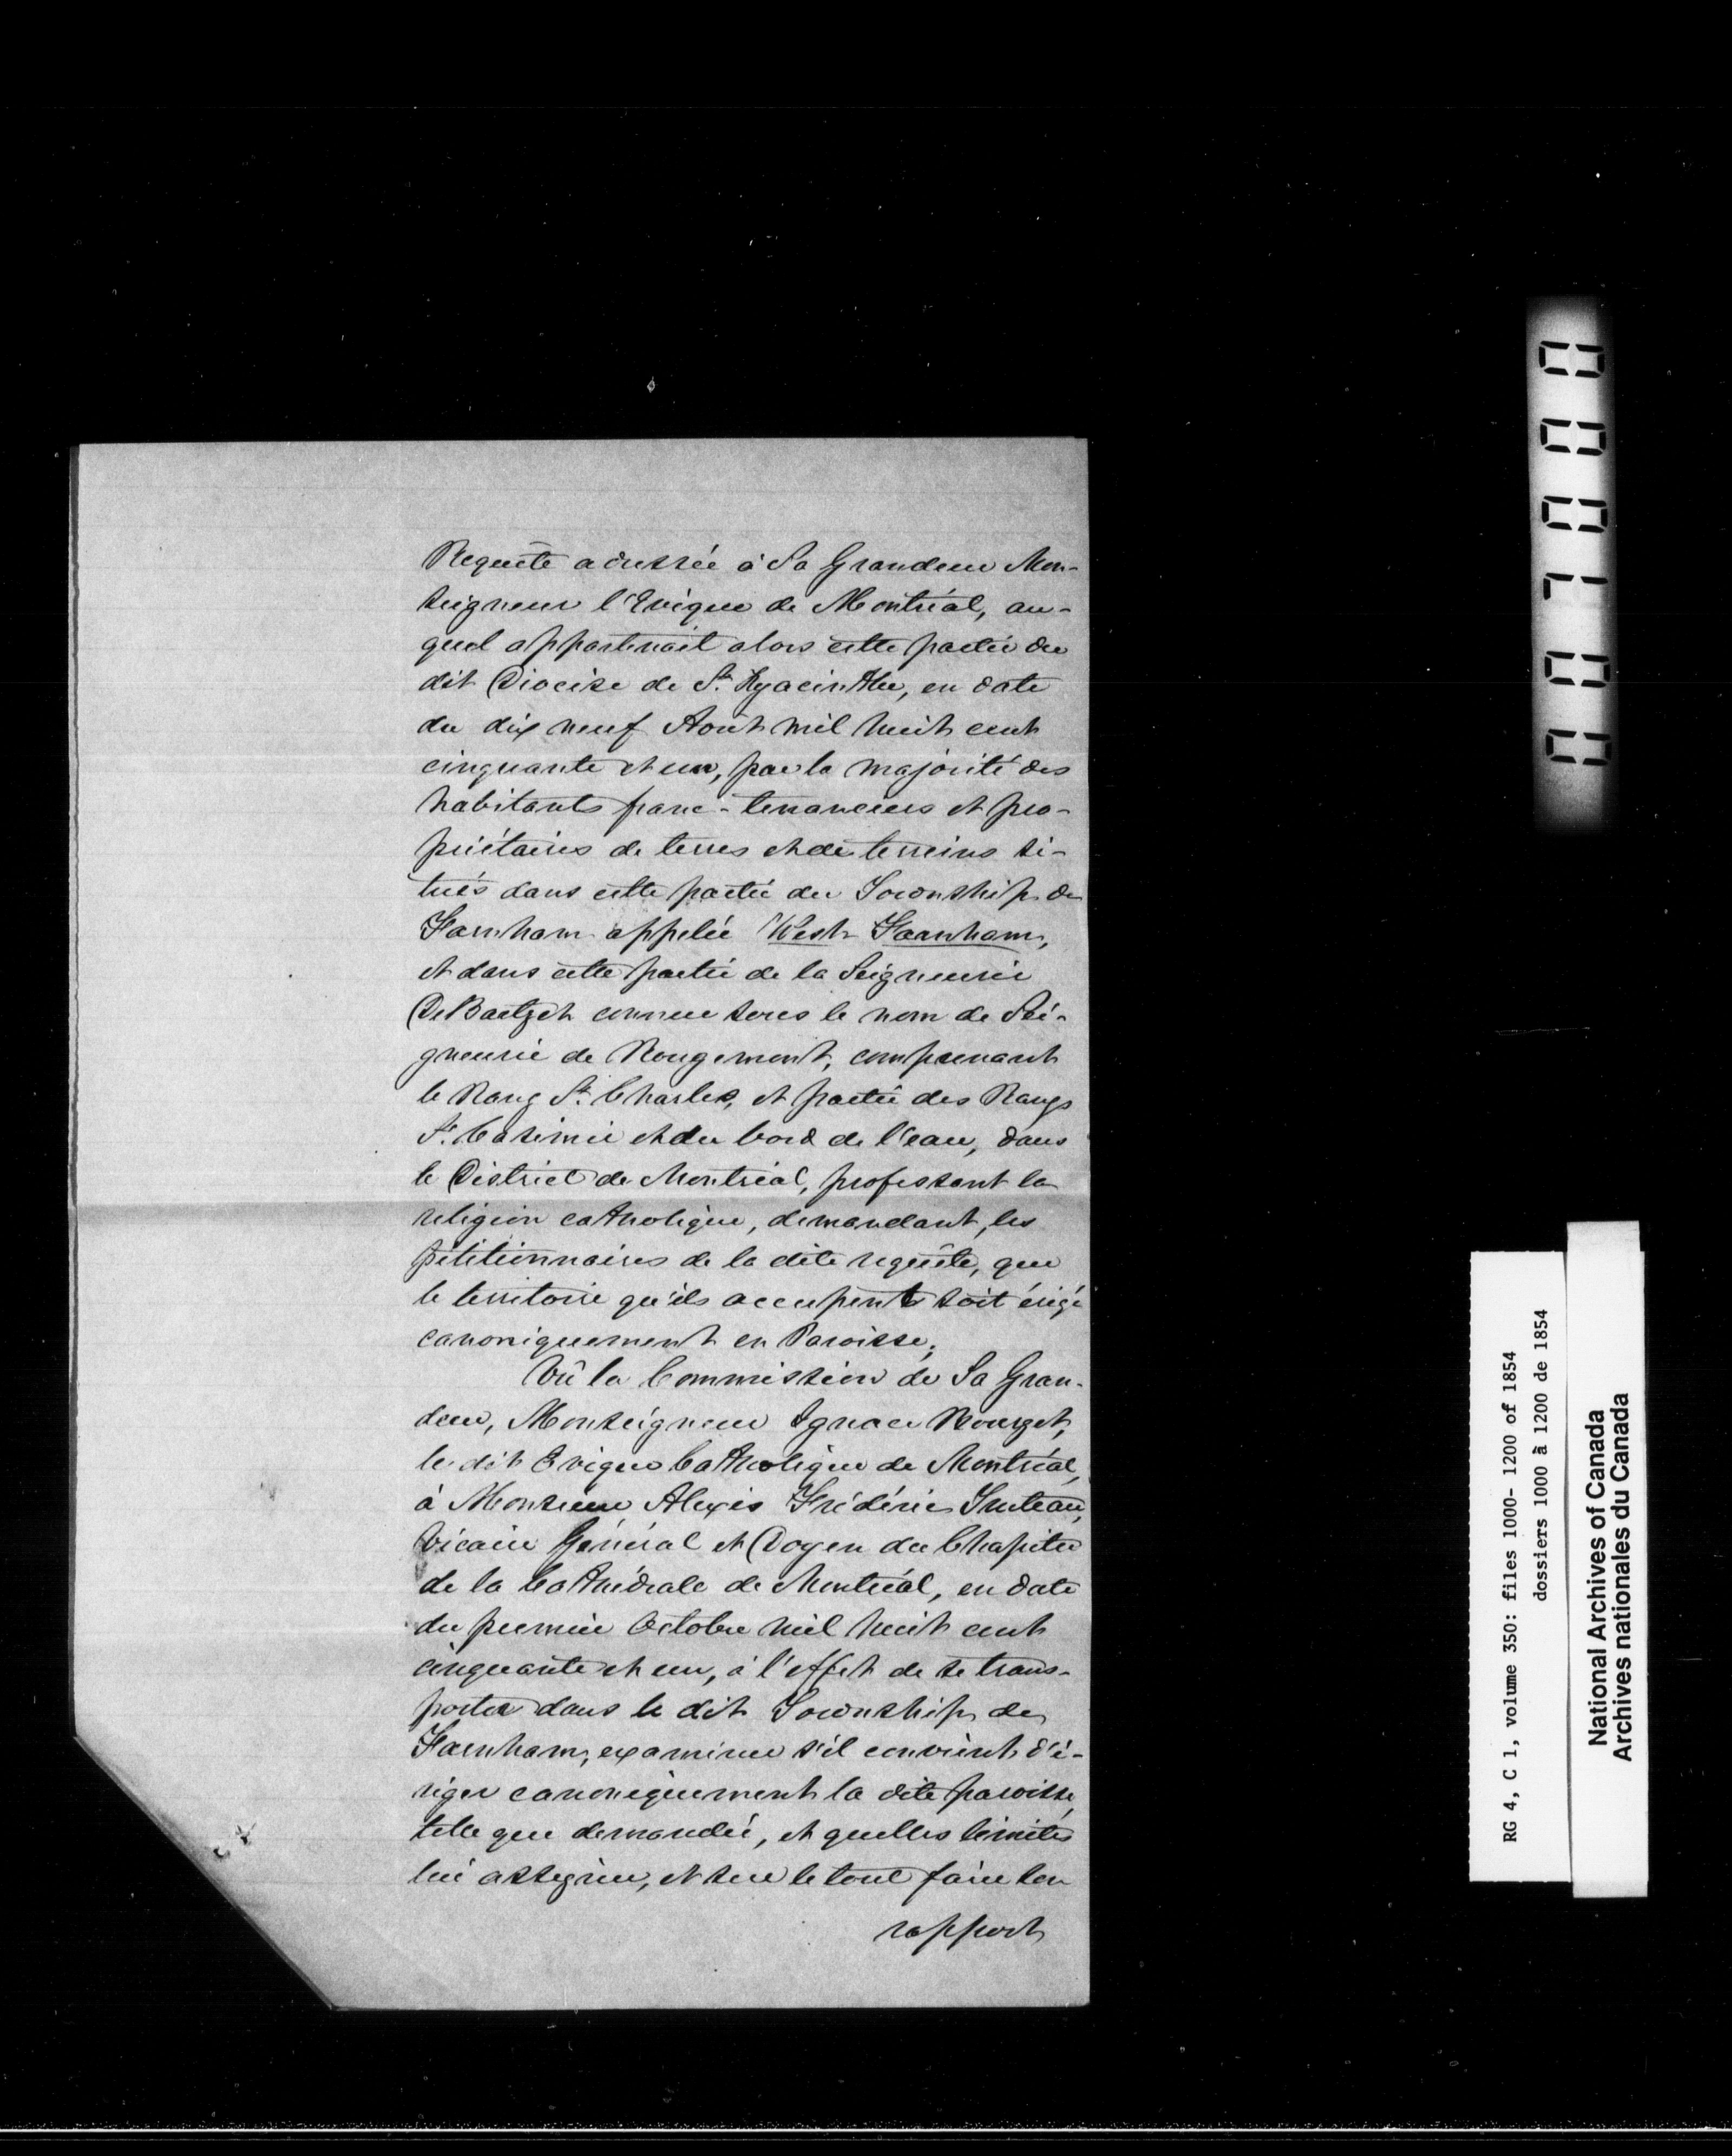 Requête adressée à Sa Grandeur Mon-
seigneur l'Evêque de Montréal, au-
quel appartenait alors cette partie du
dit Diocèse de St. Hyacinthe, en date
du dix neuf Août mil huit cent
cinquante et un, par la majorité des
habitants franc-tenanciers et pro-
priétaires de terres et de terreins si-
tués dans cette partie du Township de
Farnham appelée West Farnham,
et dans cette partie de la Seigneurie
DeBartzch connue sous le nom de Sei-
gneurie de Rougemont, comprenant
le Rang St. Charles, et partie des Rangs
St. Casimir et du bord de l'eau, dans
le District de Montréal, professant la
religion catholique, demandant, les
pétitionnaires de la dite requête, que
le territoire qu'ils occupent soit érigé
canoniquement en Paroisse;
Vû la Commission de Sa Gran-
deur, Monseigneur Ignace Bourget,
le dit Evêque Catholique de Montréal,
à Monsieur Alexis Frédéric Truteau,
Vicaire Général et Doyen du Chapitre
de la Cathédrale de Montréal, en date
du premier Octobre mil huit cent
cinquante et un, à l'effet de se trans-
porter dans le dit Township de
Farnham, examiner s'il convient d'é-
riger canoniquement la dite paroisse,
telle que demandée, et quelles limites
lui assigner, et sur le tout faire son
rapport
000700
RG 4, C 1, volume 350: files 1000- 1200 of 1854
dossiers 1000 à 1200 de 1854
National Archives of Canada
Archives nationales du Canada